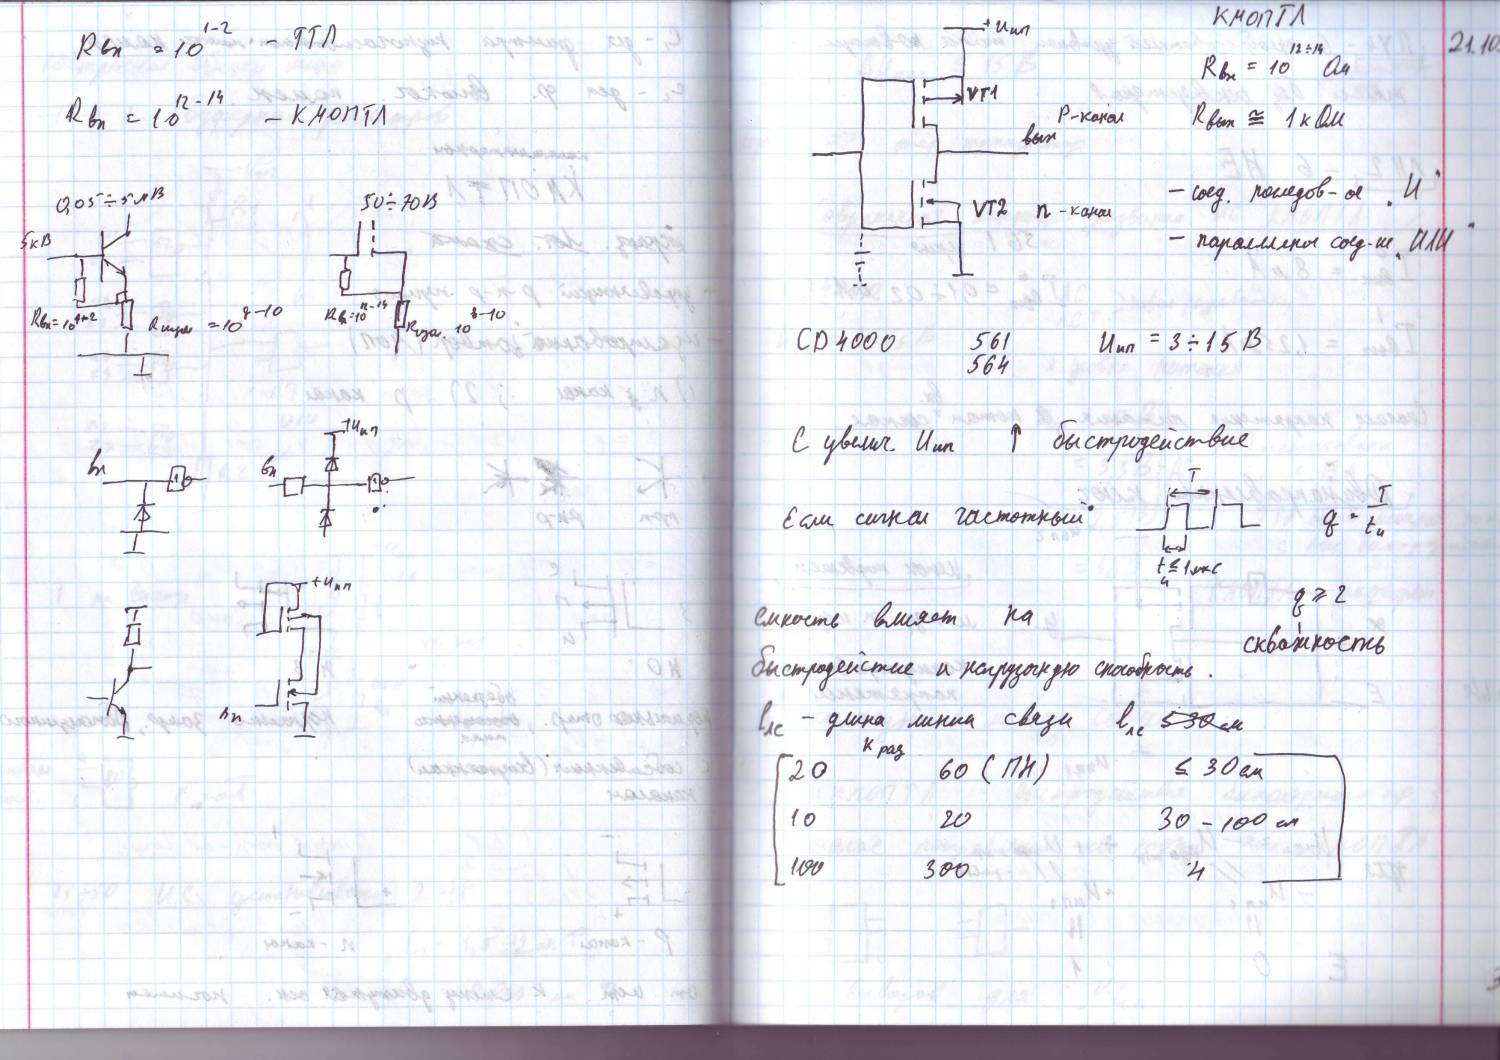 Rвх = 10^1-2 - ТТЛ
Rвх = 10^12-14 - КМОПТЛ
0,05÷5мВ
5кВ
Rвх=10^1÷2
=10^8-10
50÷70В
Rвх=10^12-14
Rизол. 10^8-10
вх
+Uип
вх
1
1
+Uип
вх
КМОПТЛ
21.10
+Uип
VT1
P-канал
вых
VT2 n-канал
Rвх = 10^12÷14 Ом
Rвых ≅ 1кОм
- соед. последов-ое "И"
- параллельное соед-ие "ИЛИ"
CD4000 561 Uип = 3÷15 В
564
С увелич. Uип ↑ быстродействие
Если сигнал частотный
T
tи ≤ 1мкс
q = T/tи
q ≥ 2
скважность
Емкость влияет на
быстродействие и нагрузочную способность.
lлс - длина линии связи lлс 530см
К раз
20 60 (ПН) ≤ 30см
10 20 30 - 100 см
100 300 4